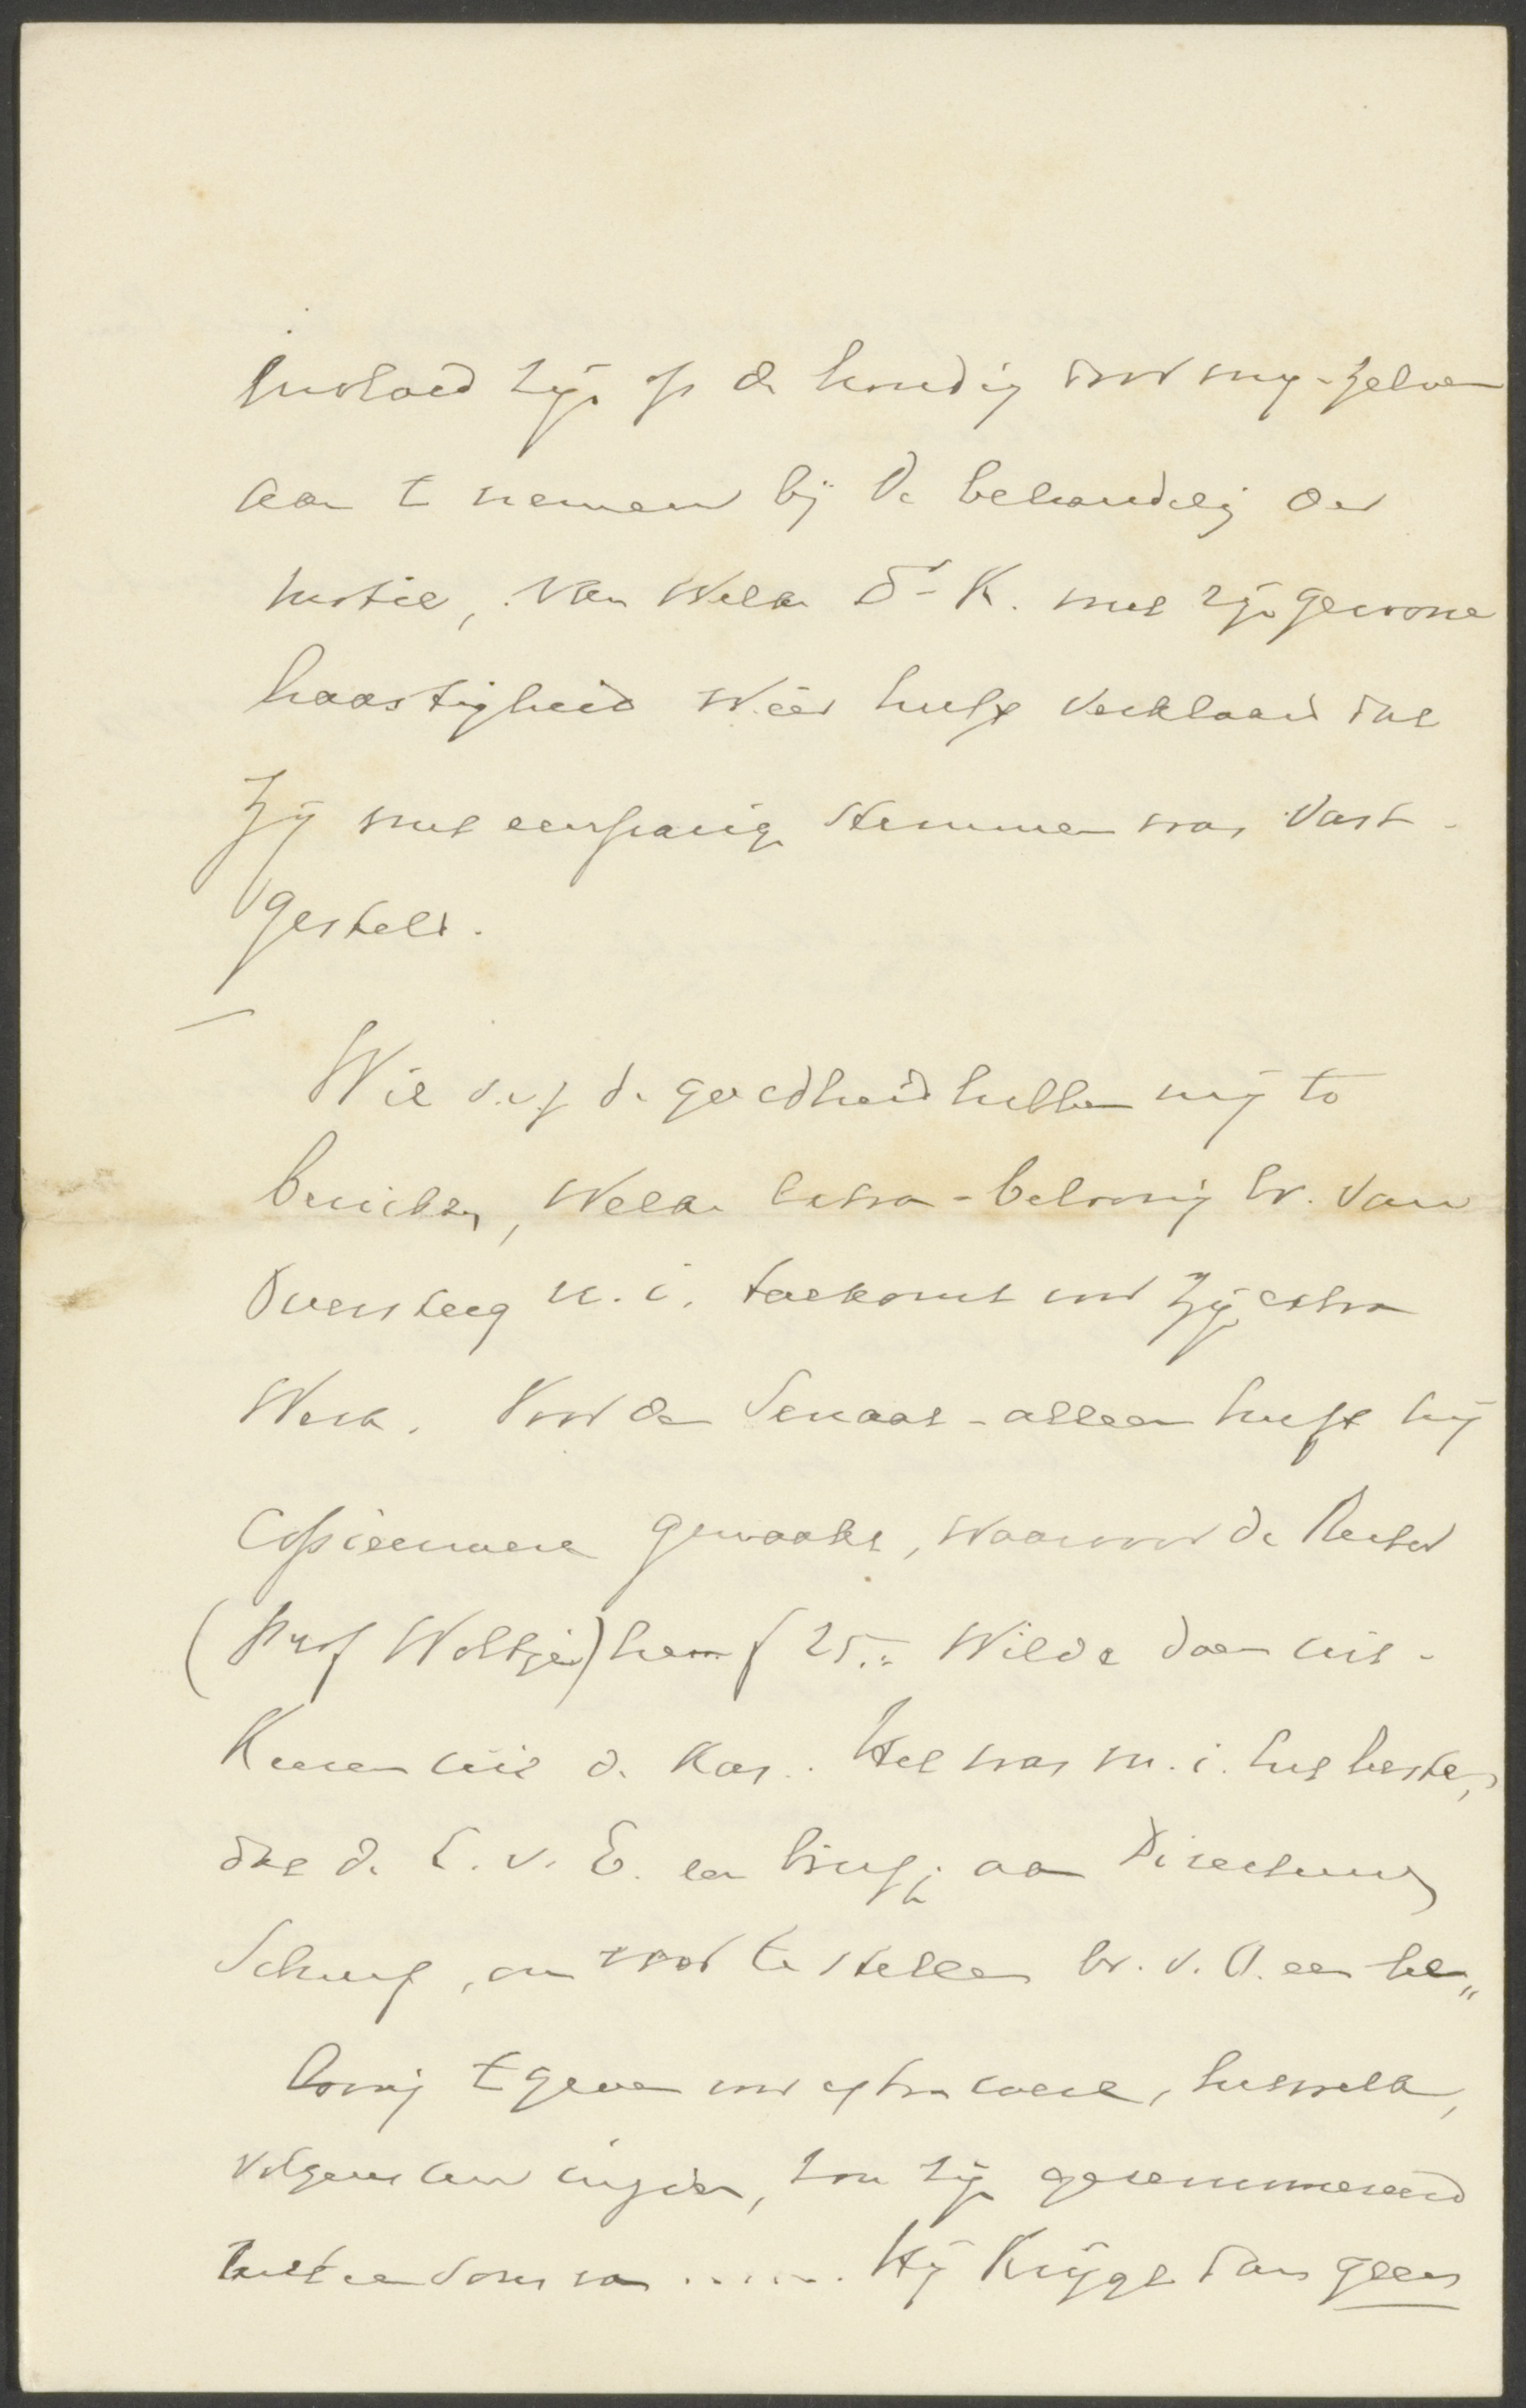 invloed zijn op de houding door mij-zelven
aan te nemen bij de behandeling der
motie, van welke Dr K. met zijn gewone
haastigheid wéér heeft verklaard dat
zij met eenparige stemmen was vast-
gesteld.
Wil s.v.p. de goedheid hebben mij te
berichten, welke extra-belooning br. van
Oversteeg m.i. toekomt voor zijn extra
werk. Voor den Senaat-alleen heeft hij
copieën gemaakt, waarvoor de Rector
(Prof Woltjer) hem f 25.- wilde doen uit-
keeren uit de kas. Het was m.i. het beste,
dat de C. v. E. een briefje aan Directeuren
schreef, om voor te stellen br. v. O. een be„
looning te geven voor extra werk, hetwelk,
volgens hun cijfer, zou zijn geremunereerd
met een som van ...... Hij krijgt dan geen